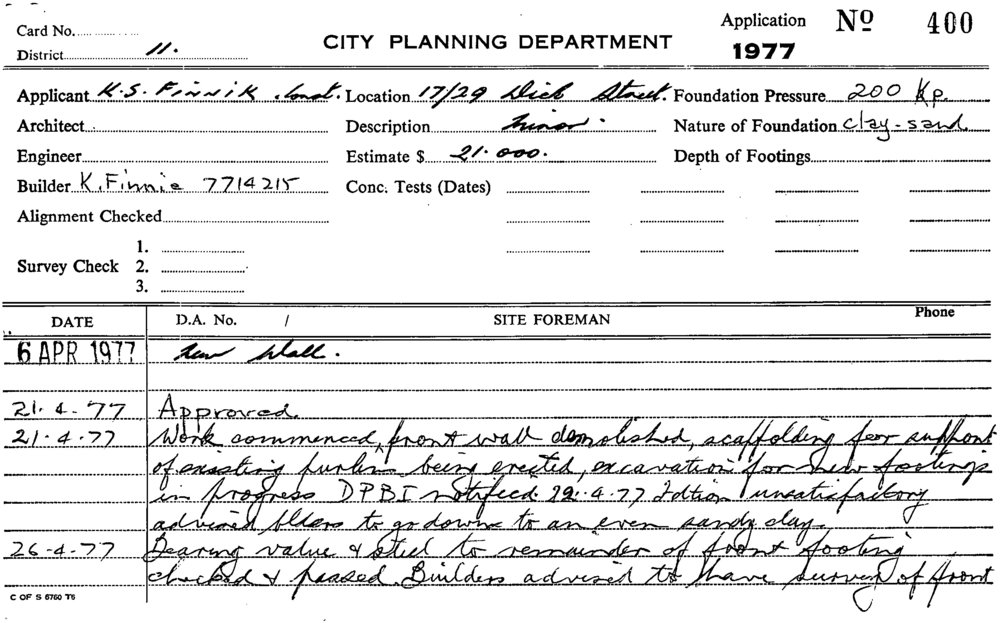 Card No.
District 11.
CITY PLANNING DEPARTMENT
Application Nº 400
1977
Applicant K.S. Finnik Const. Location 17/29 Dick Street. Foundation Pressure 200 Kp.
Architect Description Minor. Nature of Foundation clay-sand
Engineer Estimate $ 21.000. Depth of Footings
Builder K. Finnie 7714215 Conc. Tests (Dates)
Alignment Checked
1.
Survey Check 2.
3.
DATE D.A. No. / SITE FOREMAN Phone
6 APR 1977 New Wall.
21.4.77 Approved.
21.4.77 Work commenced, front wall demolished, scaffolding for support
of existing purlins being erected, excavation for new footings
in progress DPBI notified 22.4.77 unsatisfactory
advised blders to go down to an even sandy clay
26-4-77 Bearing value & steel to remainder of front footing
checked & passed. Builders advised to have survey of front
C OF S 5760 T5